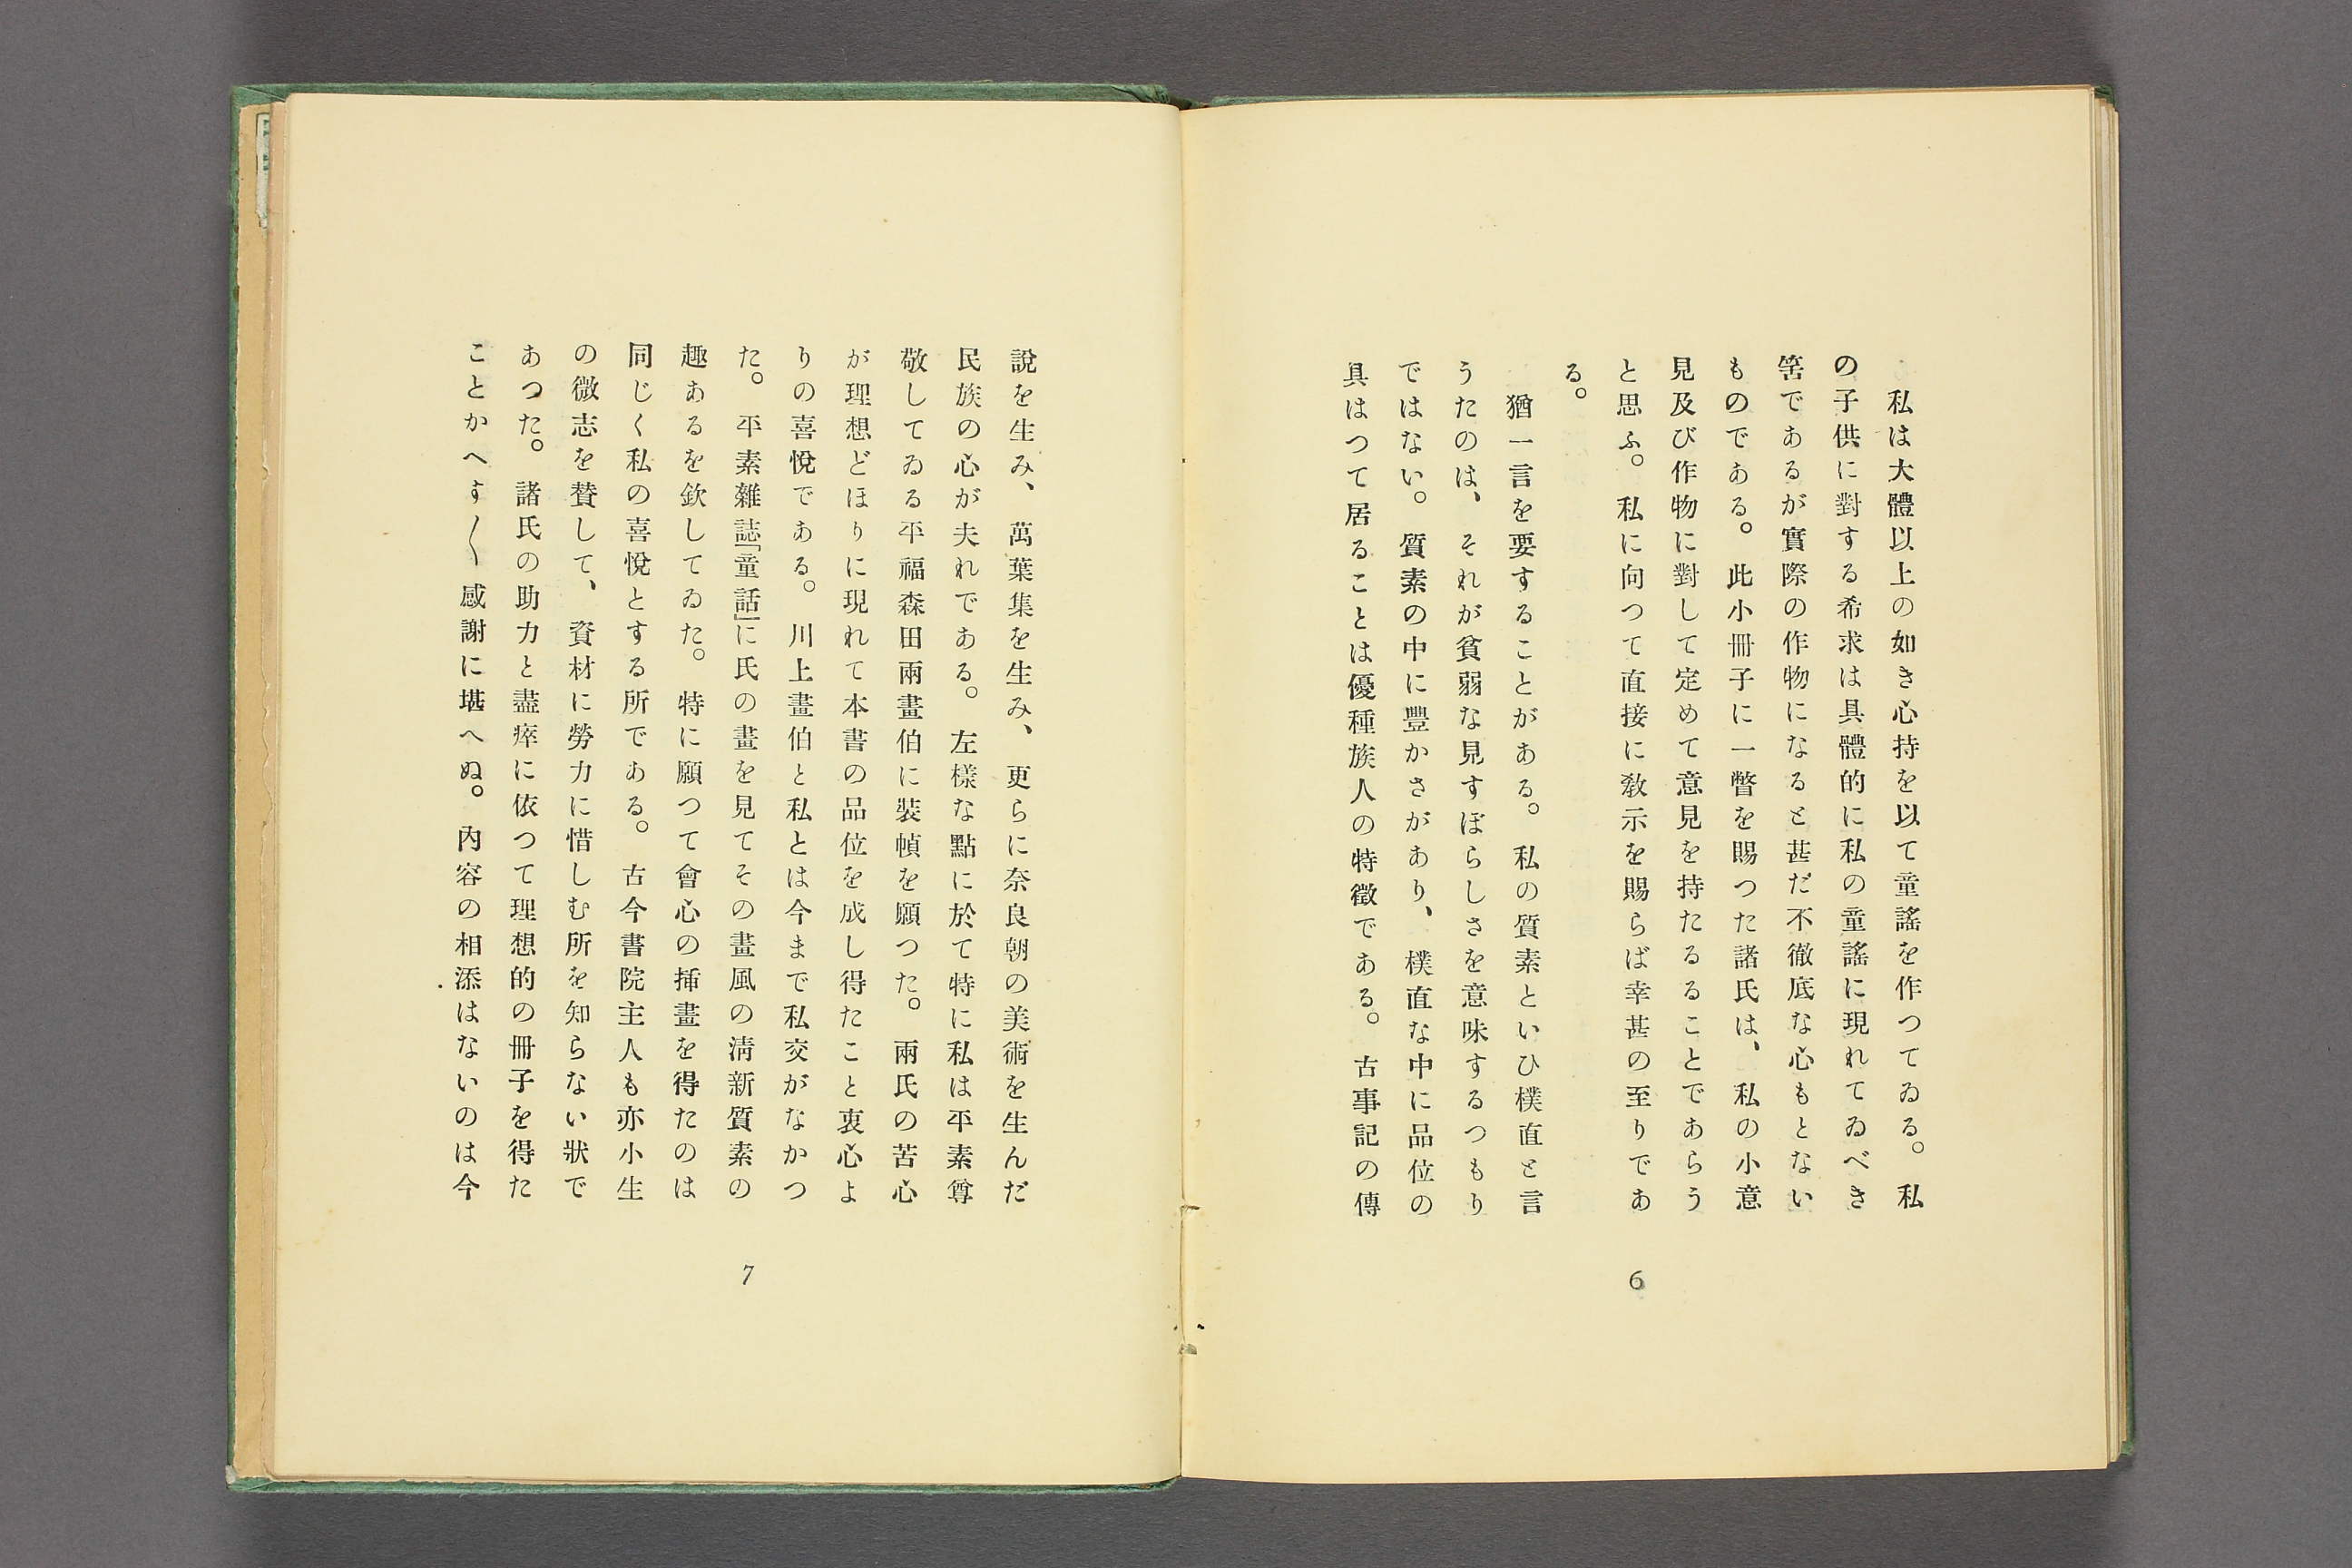 私は大體以上の如き心持を以て童謠を作つてゐる。私
の子供に對する希求は具體的に私の童謠に現れてゐべき
筈であるが實際の作物になると甚だ不徹底な心もとない
ものである。此小冊子に一瞥を賜つた諸氏は、私の小意
見及び作物に對して定めて意見を持たるることであらう
と思ふ。私に向つて直接に敎示を賜らば幸甚の至りであ
る。
猶一言を要することがある。私の質素といひ樸直と言
うたのは、それが貧弱な見すぼらしさを意味するつもり
ではない。質素の中に豐かさがあり、樸直な中に品位の
具はつて居ることは優種族人の特徵である。古事記の傳
6
說を生み、萬葉集を生み、更らに奈良朝の美術を生んだ
民族の心が夫れである。左樣な點に於て特に私は平素尊
敬してゐる平福森田兩畫伯に裝幀を願つた。兩氏の苦心
が理想どほりに現れて本書の品位を成し得たこと衷心よ
りの喜悅である。川上畫伯と私とは今まで私交がなかつ
た。平素雜誌「童話」に氏の畫を見てその畫風の淸新質素の
趣あるを欽してゐた。特に願つて會心の揷畫を得たのは
同じく私の喜悅とする所である。古今書院主人も亦小生
の微志を賛して、資材に勞力に惜しむ所を知らない狀で
あつた。諸氏の助力と盡瘁に依つて理想的の冊子を得た
ことかへす〱感謝に堪へぬ。內容の相添はないのは今
7